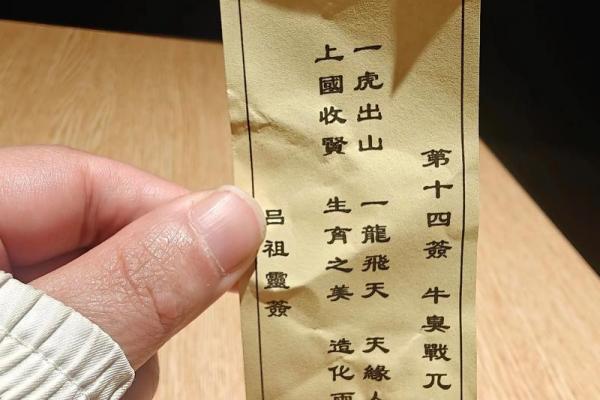 第十四簽 牛臭戰兀
一虎出山 一龍飛天 天緣人
上國收賢 生育之美 造化
呂祖靈簽